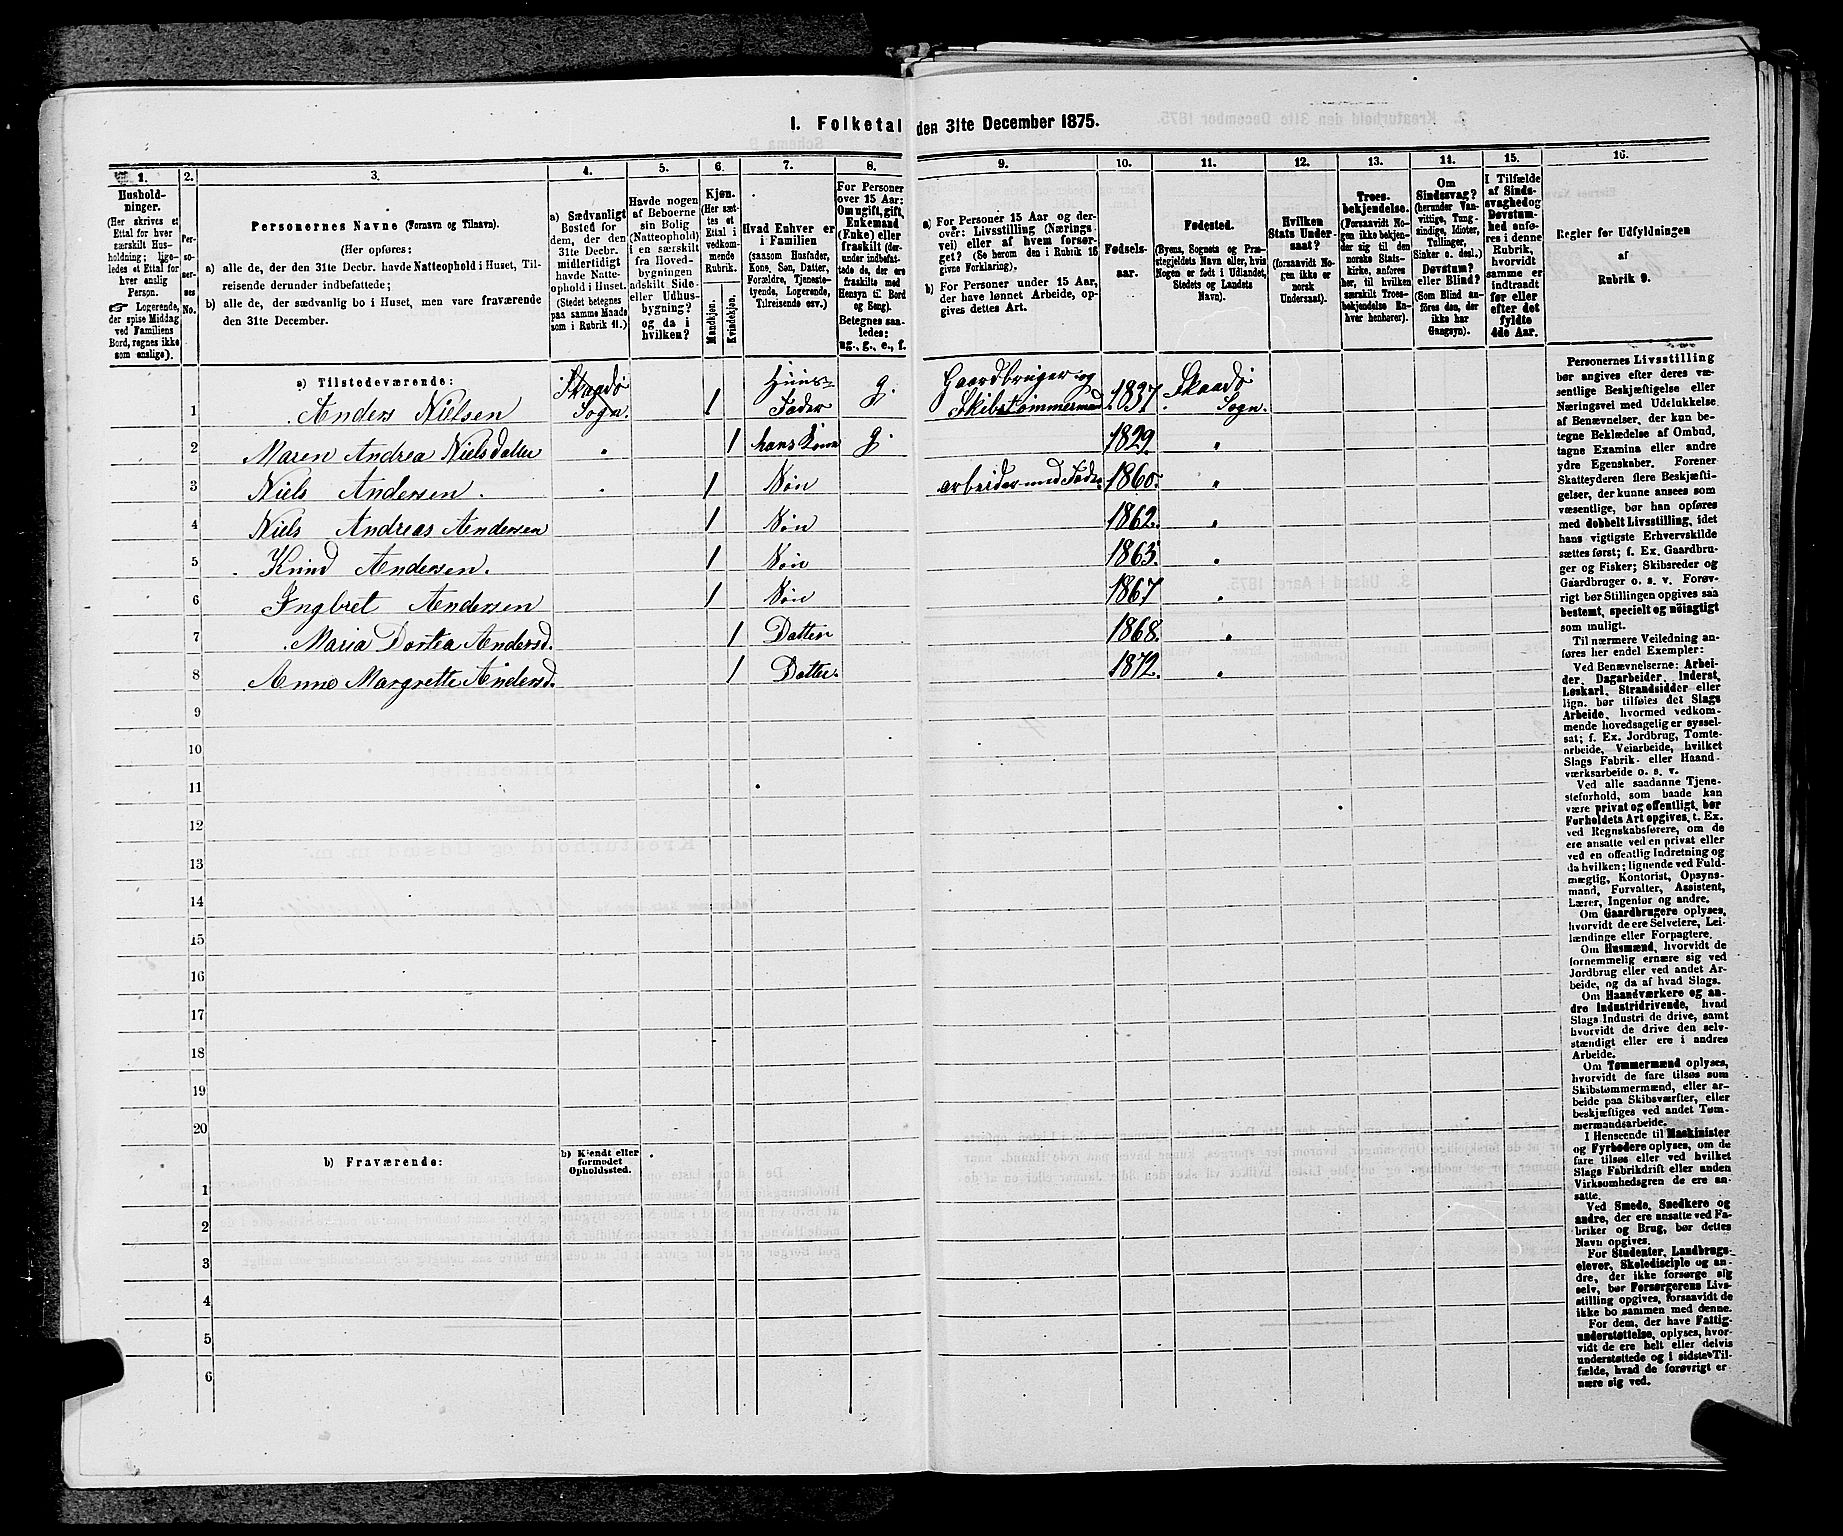 1. Folketal den 31te December 1875.
1. 2. 3. 4. 5. 6. 7. 8. 9. 10. 11. 12. 13. 14. 15. 16.
Hushold-
ninger.
(Her skrives et
Ettal for hver
særskilt Hus-
holdning; lige-
ledes et Ettal for
hver enslig
Person.
Logerende,
der spise Middag
ved Familiens
Bord, regnes ikke
som enslige).
Per-
so-
ner-
nes
No.
Personernes Navne (Fornavn og Tilnavn).
(Her opføres:
a) alle de, der den 31te Decbr. havde Natteophold i Huset, Til-
reisende derunder indbefattede;
b) alle de, der sædvanlig bo i Huset, men vare fraværende
den 31te December.
a) Sædvanligt
Bosted for
dem, der den
31te Decbr.
midlertidigt
havde Natte-
ophold i Huset.
(Stedet betegnes
paa samme Maade
som i Rubrik 11.)
Havde nogen
af Beboerne
sin Bolig
(Natteophold)
i en særskilt
fra Hoved-
bygningen
adskilt Side-
eller Udhus-
bygning?
og da i
hvilken?
Kjøn.
(Her sæt-
tes et
Ettal i
vedkom-
mende
Rubrik.
Mandkjøn.
Kvindekjøn.
Hvad Enhver er
i Familien
(saasom Husfader,
Kone, Søn, Datter,
Forældre, Tjeneste-
tyende, Logerende,
Tilreisende osv.)
For Personer
over 15 Aar:
Om ugift, gift,
Enkemand
(Enke) eller
fraskilt (der-
under indbefat-
tede de, der ere
fraskilte med
Hensyn til Bord
og Seng).
Betegnes saa-
ledes:
ug., g., e., f.
a) For Personer 15 Aar og der-
over: Livsstilling (Nærings-
vei) eller af hvem forsør-
get? (Se herom den i Rubrik 16
givne Forklaring),
b) For Personer under 15 Aar,
der have lønnet Arbeide, op-
gives dettes Art.
Fødsels-
aar.
Fødested.
(Byens, Sognets og Præ-
stegjeldets Navn eller, hvis
Nogen er født i Udlandet,
Stedets og Landets
Navn).
Hvilken
Stats Under-
saat?
(forsaavidt No-
gen ikke er
norsk
Undersaat).
Troes-
bekjendelse.
(Forsaavidt No-
gen ikke bekjen-
der sig til den
norske Stats-
kirke, anføres
her, til hvilken
særskilt Troes-
bekjendelse En-
hver henhører).
Om
Sindssvag?
(herunder Van-
vittige, Tung-
sindige, Idioter,
Tullinger,
Sinker o. desl.)
Døvstum?
eller Blind?
(Som Blind an-
føres den, der
ikke har
Gangsyn).
I Tilfælde
af Sinds-
svaghed og
Døvstum-
hed anfø-
res i denne
Rubrik,
hvorvidt
samme er
indtraadt
før eller
efter det
fyldte
4de Aar.
Regler for Udfyldningen
af
Rubrik 9.
a) Tilstedeværende:
1 Anders Nielsen Skaadø Sogn. 1 Huus-Fader g. Gaardbruger og Skibstømmermand 1837 Skaadø Sogn.
2 Maren Andrea Nielsdatter " 1 hans Kone g. 1829 "
3 Niels Andersen. " 1 Søn arbeider med Fader 1860. "
4 Niels Andreas Andersen 1 Søn 1862. "
5 Knud Andersen. 1 Søn 1865 "
6 Ingbret Andersen 1 Søn 1867 "
7 Maria Dortea Andersd. 1 Datter 1868. "
8 Anne Margrette Andersd. 1 Datter. 1872. "
9
10
11
12
13
14
15
16
17
18
19
20
b) Fraværende:
b) Kjendt eller
formodet
Opholdssted.
1
2
3
4
5
6
Personernes Livsstilling
bør angives efter deres væ-
sentlige Beskjæftigelse eller
Næringsvei med Udelukkelse
af Benævnelser, der kun be-
tegne Beklædelse af Ombud,
tagne Examina eller andre
ydre Egenskaber. Forener
Skatteyderen flere Beskjæfti-
gelser, der kunne ansees som
væsentlige, bør han opføres
med dobbelt Livsstilling, idet
hans vigtigste Erhvervskilde
sættes først; f. Ex. Gaardbru-
ger og Fisker; Skibsreder og
Gaardbruger o. s. v. Forøv-
rigt bør Stillingen opgives saa
bestemt, specielt og nöiagtigt
som muligt.
Til nærmere Veiledning an-
føres her endel Exempler:
Ved Benævnelserne: Arbei-
der, Dagarbeider, Inderst,
Løskarl, Strandsidder eller
lign. bør tilføies det Slags
Arbeide, hvormed vedkom-
mende hovedsagelig er syssel-
sat; f. Ex. Jordbrug, Tomte-
arbeide, Veiarbeide, hvilket
Slags Fabrik- eller Haand-
værksarbeide o. s. v.
Ved alle saadanne Tjene-
steforhold, som baade kan
være privat og offentligt, bør
Forholdets Art opgives, t. Ex.
ved Regnskabsførere, om de
ere ansatte ved en privat eller
ved en offentlig Indretning og
da hvilken; lignende ved Fuld-
mægtig, Kontorist, Opsyns-
mand, Forvalter, Assistent,
Lærer, Ingeniør og andre.
Om Gaardbrugere oplyses,
hvorvidt de ere Selveiere, Lei-
lændinge eller Forpagtere.
Om Husmænd, hvorvidt de
fornemmelig ernære sig ved
Jordbrug eller ved andet Ar-
beide, og da af hvad Slags.
Om Haandværkere og an-
dre Industridrivende, hvad
Slags Industri de drive, samt
hvorvidt de drive den selv-
stændigt eller ere i andres
Arbeide.
Om Tømmermænd oplyses,
hvorvidt de fare tilsøs som
Skibstømmermænd, eller ar-
beide paa Skibsværfter, eller
beskjæftiges ved andet Tøm-
mermandsarbeide.
I Henseende til Maskinister
og Fyrbødere oplyses, om de
fare tilsøs eller ved hvilket
Slags Fabrikdrift eller anden
Virksomhedsgren de ere an-
satte.
Ved Smede, Snedkere og
andre, der ere ansatte ved Fa-
briker og Brug, bør dettes
Navn opgives.
For Studenter, Landbrugs-
elever, Skoledisciple og an-
dre, der ikke forsørge sig
selv, bør Forsørgerens Livs-
stilling opgives, forsaavidt de
ikke bo sammen med denne.
For dem, der have Fattig-
understøttelse, oplyses, hvor-
vidt de ere helt eller delvis
understøttede og i sidste Til-
fælde, hvad de forøvrigt er-
nære sig ved.